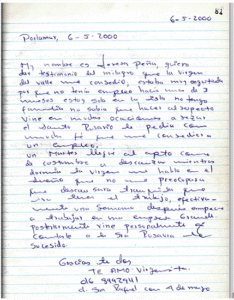 6-5-2000
Porlamar, 6-5-2000
My nombre es Peña, quiero
dar testimonio del milagro que la virgen
del valle me concedio, estaba muy angustiada
por que no tenia empleo hacia mas de 3
meses estoy sola en la isla no tengo
familia no sabia que hacer al respecto
Vine en muchas ocaciones a rezar
el Santo Rosario le pedia con
mucha fé que me concediera
un empleo,
un martes llegue al apto como
de costumbre a descansar mientras
dormia la virgen me hablo en el
sueño que no me preocupara
que descansara tranquila que
iba tener el trabajo, efectiva-
mente una semana despues empece
a trabajar en una empresa Grande
Posteriormente vine personalmente a
contarle a la Sra Rosaria lo
sucedido.
Gracias te doy
Te AMO Virgencita.
016 8942941